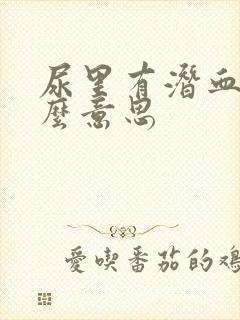 尿里有潛血
麼意思
愛喫番茄的鸡